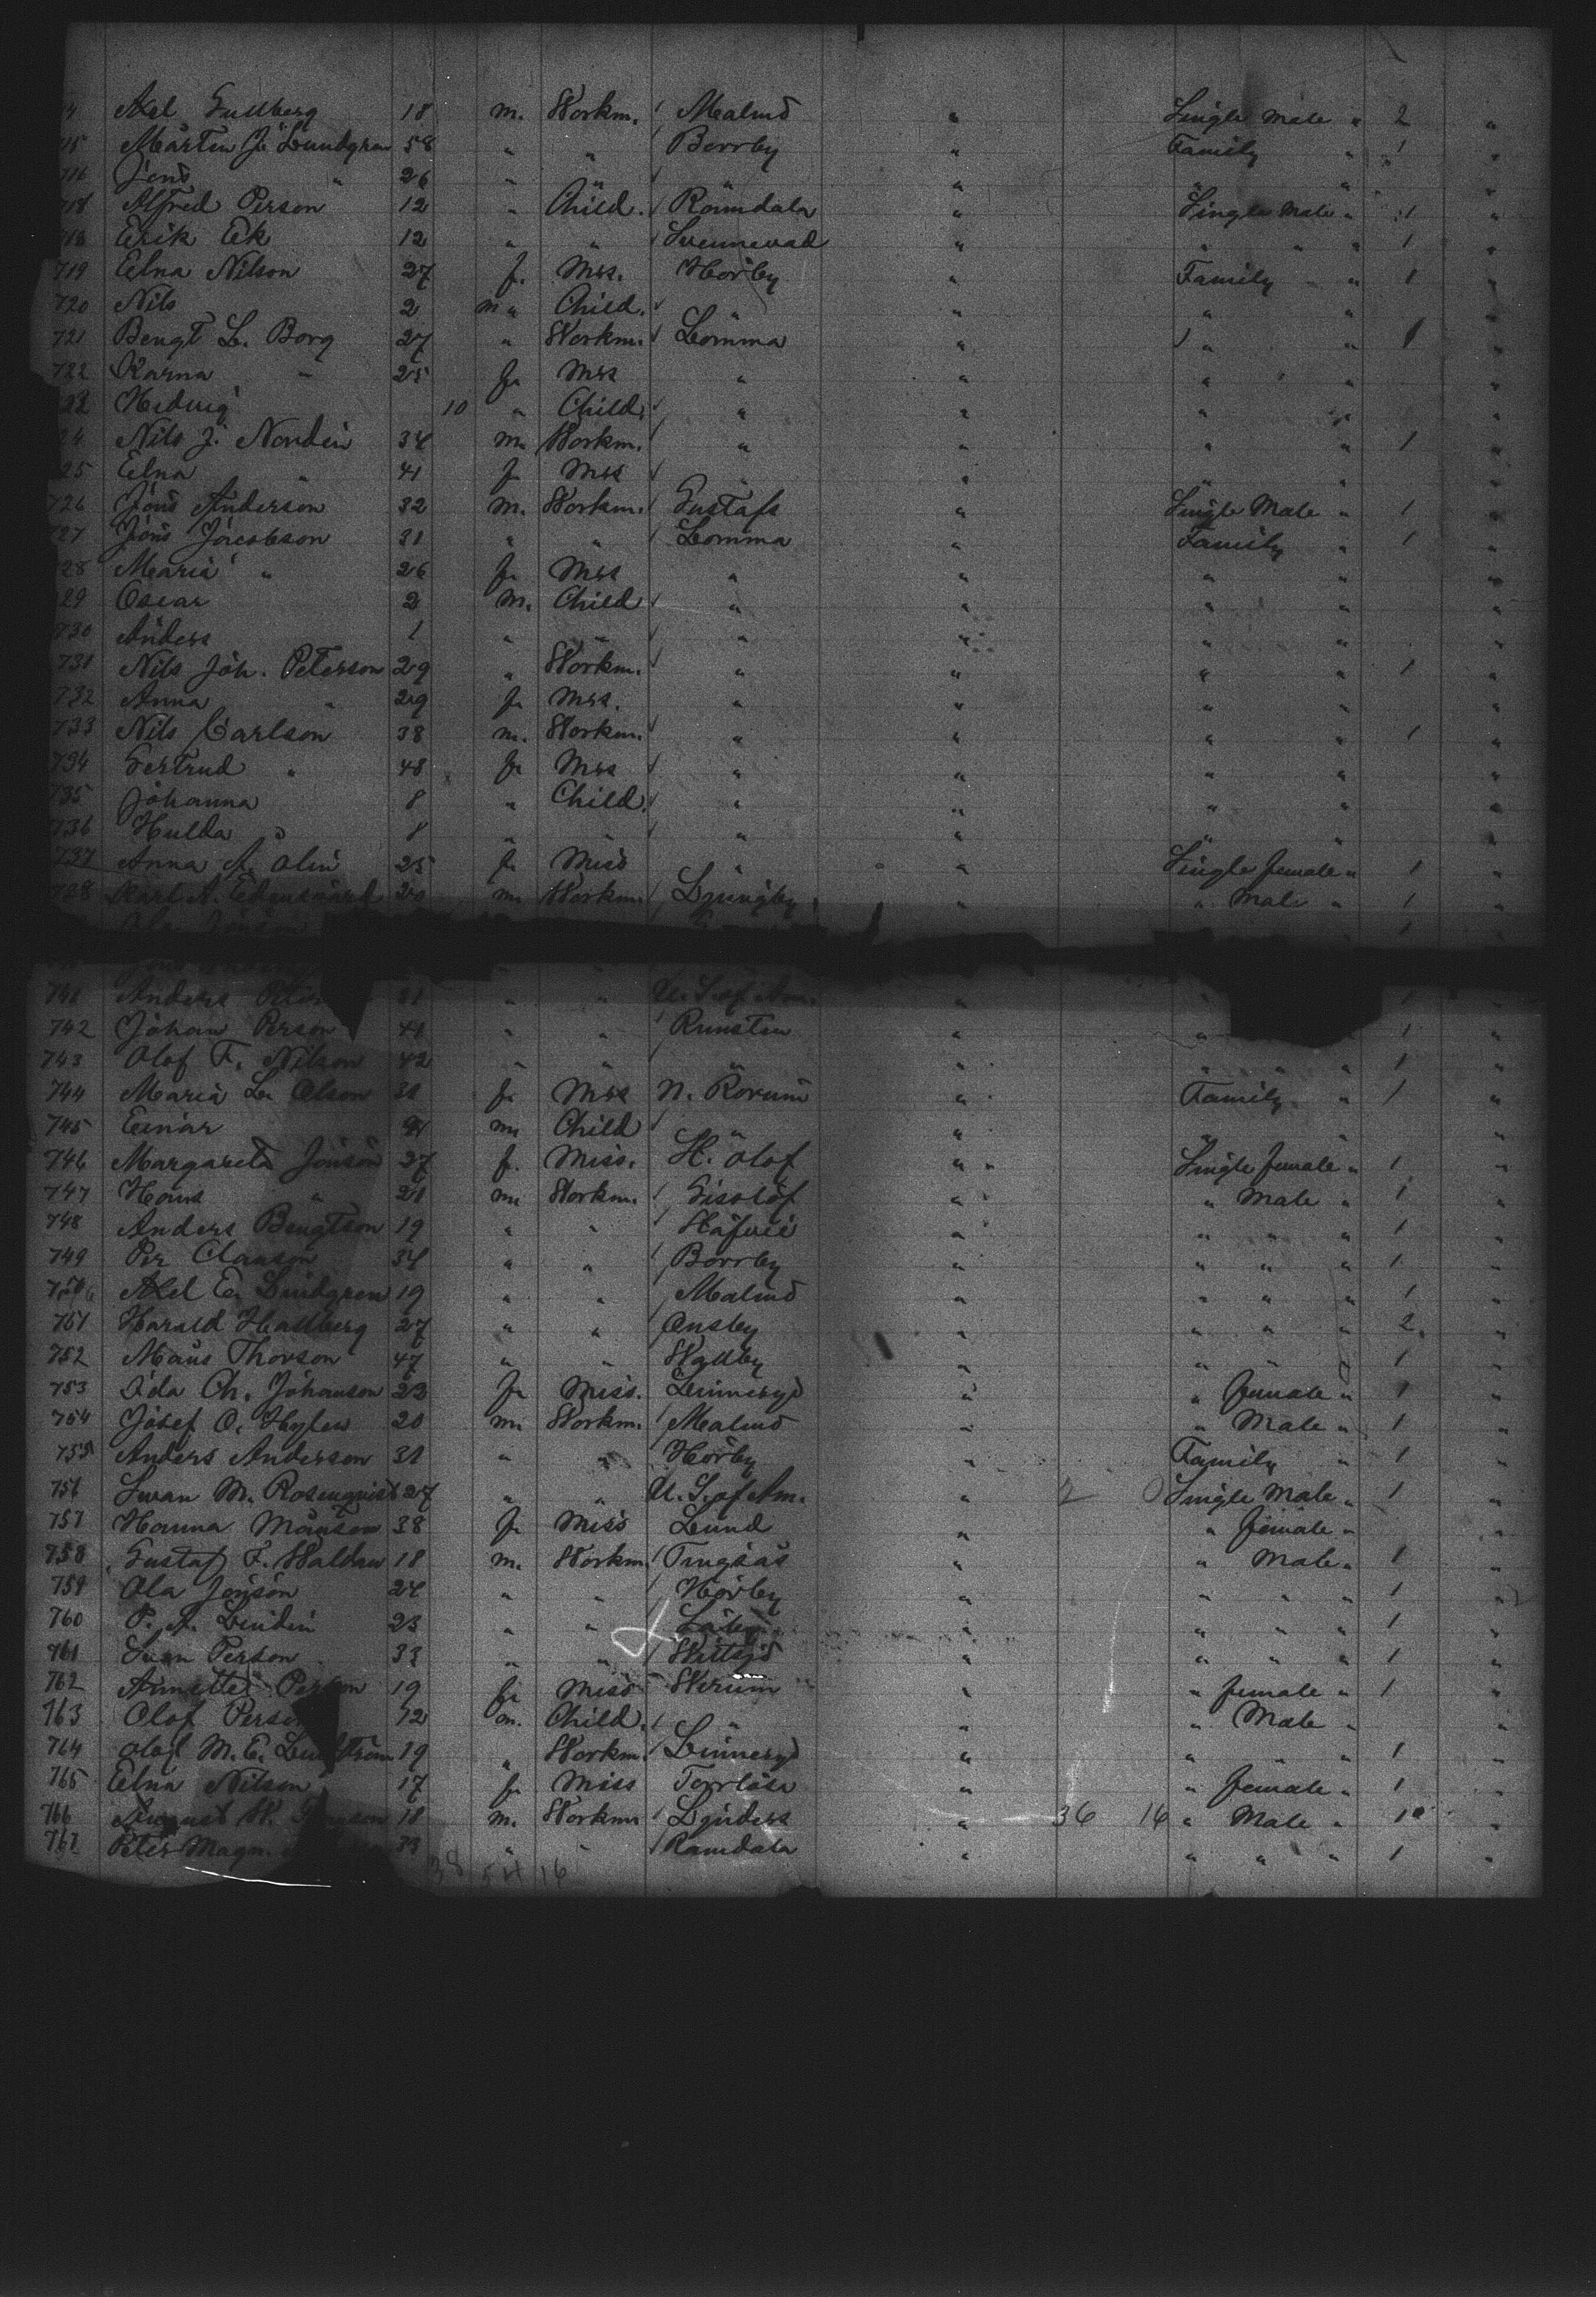 4 Axel Gullberg 18 m. Workm. Malmö " Single male " 2 "
15 Mårten J. Lundgren 58 " " Borrby " Family " 1 "
716 Jens " 26 " " " " " " "
718 Alfred Person 12 " Child. Romdala " Single Male " 1 "
718 Erik Ek 12 " " Svennevad " " " " 1 "
719 Elna Nilson 27 f. Mrs. Hörby " Family " 1 "
720 Nils 2 m " Child. " " " " "
721 Bengt L. Borg 27 " Workm. Lomma " " " 1 "
722 Karna " 25 f. Mrs " " " " "
22 Hedvig 10 " Child. " " " " "
24 Nils J. Nordin 34 m. Workm. " " " " 1 "
25 Elna " 41 f. Mrs " " " " "
726 Jöns Anderson 32 m. Workm. Gustafs " Single Male " 1 "
727 Jöns Jacobson 31 " " Lomma " Family " 1 "
28 Maria " 26 f. Mrs " " " " "
29 Oscar 2 m. Child " " " " "
730 Anders 1 " " " " " " "
731 Nils Joh. Peterson 29 " Workm. " " " " 1 "
732 Anna " 29 f. Mrs. " " " " "
733 Nils Carlson 38 m. Workm. " " " " 1 "
734 Gertrud " 48 f. Mrs " " " " "
735 Johanna 8 " Child. " " " " "
736 Hulda " 8 " " " " " " "
737 Anna A. Olin 25 f. Miss " " Single female " 1 "
738 Karl A. 20 m. Workm. Ljungby " " Male " 1 "
Ola Jönson
741 Anders 31 " " U. S. of Am. " 1 "
742 Johan Person 41 " " Runsten " " 1 "
743 Olof F. Nilson 42 " " " " " " " 1 "
744 Maria L. Olson 31 f. Mrs N. Rörum " Family " 1 "
745 Einar m. Child " " " " "
746 Margareta Jönson 27 f. Miss. St. Olof " Single female " 1 "
747 Hans " 21 m. Workm. Gislöf " " Male " 1 "
748 Anders Bengtson 19 " " " " " " 1 "
749 Per Clauson 34 " " Borrby " " " " 1 "
750 Axel E. Lindgren 19 " " Malmö " " " " 1 "
751 Harald Hallberg 27 " " Onsby " " " " 2 "
752 Måns Thorson 47 " " Wallby " " " " 1 "
753 Ida Ch. Johanson 23 f. Miss. Linneryd " " female " 1 "
754 Josef O. Hylen 20 m. Workm. Malmö " " Male " 1 "
755 Anders Anderson 31 " " Hörby " Family " 1 "
756 Swan M. Rosenquist 27 " " U. S. of Am. " 2 0 Single Male " 1 "
757 Hanna Månson 38 f. Miss Lund " " female " "
758 Gustaf F. Waldau 18 m. Workm. Tingsås " " Male " 1 "
759 Ola Jönson 24 " " Hörby " " " " 1 "
760 P. A. Lindin 23 " " " " " " 1 "
761 Sven Person 33 " " Wittsjö " " " " 1 "
762 Annette Person 19 f. Miss Werum " " female " 1 "
763 Olof Person 12 m. Child. " " " Male "
764 Olof M. E. 19 " Workm. Linneryd " " " " 1 "
765 Elna Nilson 17 f. Miss Torrlösa " " female " 1 "
766 August 18 m. Workm. Ljuders " 36 16 " Male " 1 "
767 Peter Magn. 39 " " Ramdala " " " " 1 "
38 54 16